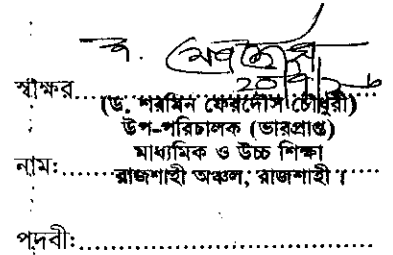 স্বাক্ষর..........
(ড. শরমিন ফেরদৌস চৌধুরী)
উপ-পরিচালক (ভারপ্রাপ্ত)
মাধ্যমিক ও উচ্চ শিক্ষা
নাম:..........
রাজশাহী অঞ্চল, রাজশাহী।
পদবী:..........